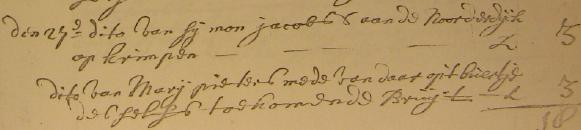 den 27d dito van sij mon jacobs aan de Noorderdijk
op krimpen - - - £ 3
dito van Marij pieters mede van daar
desselfs toekomende Bruijt - £ 3
18